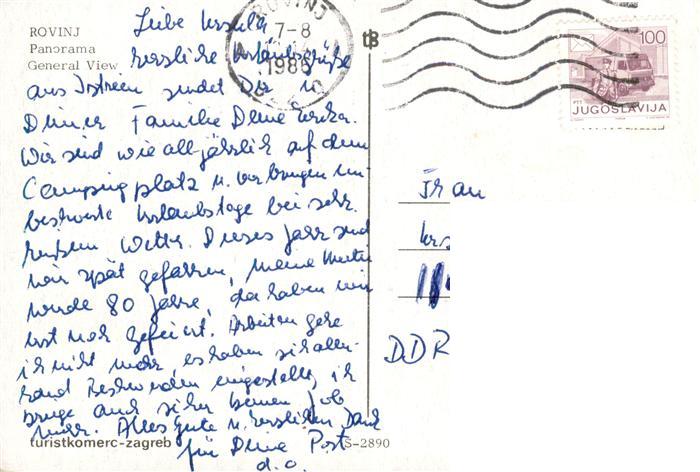 ROVINJ
Panorama
General View
ROVINJ
7-8
1986
100
PTT
JUGOSLAVIJA
Liebe Ursula
herzliche Urlaubsgrüße
aus Istrien sendet Dir u.
Deiner Familie Deine
Wir sind wie alljährlich auf dem
Campingplatz u. verbringen un-
beschwerte Urlaubstage bei sehr
heißem Wetter. Dieses Jahr sind
wir spät gefahren, meine Mutti
wurde 80 Jahre, da haben wir
erst noch gefeiert. Arbeiten gehe
ich nicht mehr, es haben sich aller-
hand Beschwerden eingestellt, ich
kriege auch sicher keinen Job
mehr. Alles Gute u. herzlichen Dank
für Deine Post
d. O.
Frau
DDR
turistkomerc-zagreb
S-2890